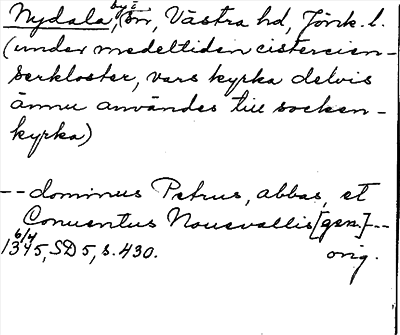 Nydala, by i sn, Västra hd, Jönk. l.
(under medeltiden cistercien-
serkloster, vars kyrka delvis
ännu användes till socken-
kyrka)
-- dominus Petrus, abbas, et
Conuentus Nouevallis [gen.] --
6/4 1345, SD 5, s. 430. orig.